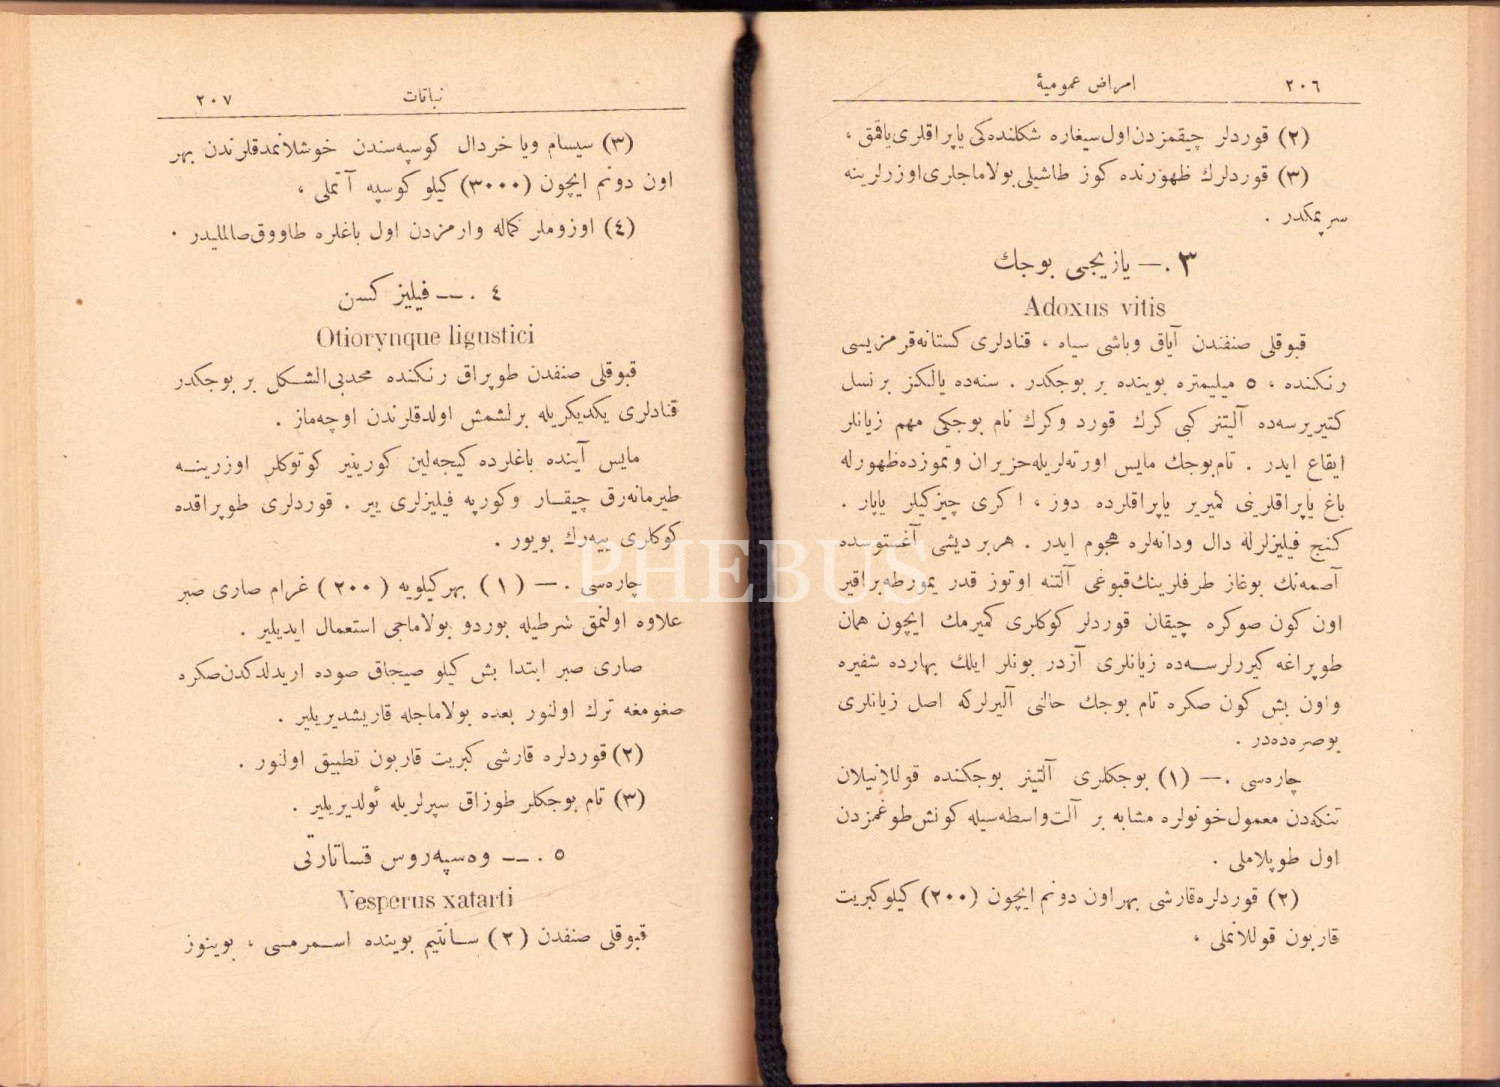 ٢٠٦ امراض عمومیۀ
(٢) قوردلر چیقمزدن اول سیغاره شکلنده کی یاپراقلری یاقمق ،
(٣) قوردلرك ظهورنده کوز طاشیلی بولاماجلری اوزرلرینه
سرپمکدر .
٣ .— یازیجی بوجك
Adoxus vitis
قبوقلی صنفندن آیاق وباشی سیاه ، قنادلری کستانه قرمزیسی
رنکنده ، ٥ میلیمتره بوینده بر بوجکدر . سنه ده یالکز بر نسل
کتیریرسه ده آلتینر کبی کرك قورد وکرك تام بوجکی مهم زیانلر
ایقاع ایدر . تام بوجك مایس اورته لریله حزیران وتموزده ظهورله
باغ یاپراقلرینی کمیریر یاپراقلرده دوز ، اکری چیزکیلر یاپار .
کنج فیلیزلرله دال ودانه لره هجوم ایدر . هر بر دیشی آغستوسده
آصمه نك بوغاز طرفلرینك قبوغی آلتنه اوتوز قدر یمورطه براقیر
اون کون صوکره چیقان قوردلر کوکلری کمیرمك ایچون همان
طوپراغه کیررلرسه ده زیانلری آزدر بونلر ایلك بهارده شفیره
واون بش کون صکره تام بوجك حالنی آلیرلرکه اصل زیانلری
بوصره ده در .
چاره سی .— (١) بوجکلری آلتینر بوجکنده قوللانیلان
تنکه دن معمول خونولره مشابه بر آلت واسطه سیله کونش طوغمزدن
اول طوپلاملی .
(٢) قوردلره قارشی بهر اون دونم ایچون (٢٠٠) کیلو کبریت
قاربون قوللانملی ،
نباتات ٢٠٧
(٣) سیسام ویا خردال کوسپه سندن خوشلانمدقلرندن بهر
اون دونم ایچون (٣٠٠٠) کیلو کوسپه آتملی ،
(٤) اوزوملر کماله وارمزدن اول باغلره طاووق صالملیدر .
٤ .— فیلیز کسن
Otiorynque ligustici
قبوقلی صنفدن طوپراق رنکنده محدبی الشکل بر بوجکدر
قنادلری یکدیکریله برلشمش اولدقلرندن اوچه ماز .
مایس آینده باغلرده کیجه لین کورینیر کوتوکلر اوزرینه
طیرمانه رق چیقار وکورپه فیلیزلری ییر . قوردلری طوپراقده
کوکلری ییه رك بویور .
چاره سی .— (١) بهر کیلویه (٢٠٠) غرام صاری صبر
علاوه اولنمق شرطیله بوردو بولاماجی استعمال ایدیلیر .
صاری صبر ابتدا بش کیلو صیجاق صوده اریدلدکدن صکره
صغومغه ترك اولنور بعده بولاماجله قاریشدیریلیر .
(٢) قوردلره قارشی کبریت قاربون تطبیق اولنور .
(٣) تام بوجکلر طوزاق سپرلریله ئولدیریلیر .
٥ .— وه سپه روس قساتارتی
Vesperus xatarti
قبوقلی صنفدن (٢) سانتیم بوینده اسمرمسی ، بوینوز
PHEBUS